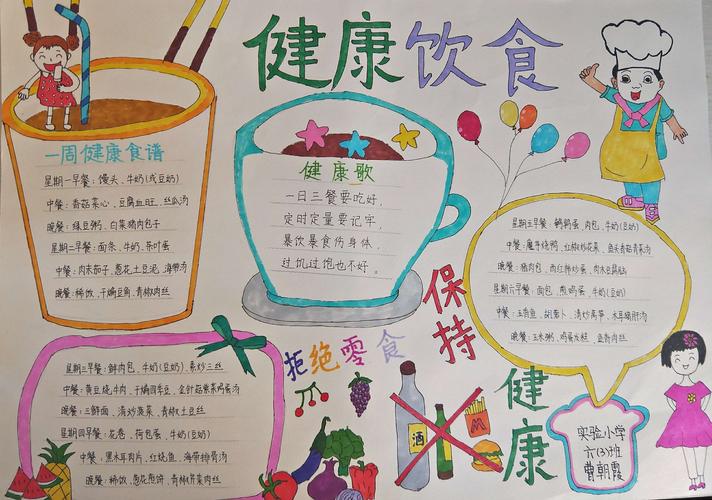 健康饮食
一周健康食谱
星期一早餐：馒头、牛奶(或豆奶)
中餐：香菇菜心、豆腐血旺、丝瓜汤
晚餐：绿豆粥、白菜猪肉包子
星期二早餐：面条、牛奶、茶叶蛋
中餐：肉末茄子、葱花土豆泥、海带汤
晚餐：稀饭、干煸豆角、青椒肉丝
健康歌
一日三餐要吃好，
定时定量要记牢，
暴饮暴食伤身体，
过饥过饱也不好。
星期五早餐：鹌鹑蛋、肉包、牛奶(豆奶)
中餐：魔芋烧鸭、红椒炒花菜、鱼头香菇青菜汤
晚餐：猪肉包、西红柿炒蛋、肉末豆腐脑
星期六早餐：面包、煎鸡蛋、牛奶(豆奶)
中餐：胡萝卜、清炒莴笋、木耳猪肝汤
晚餐：玉米粥、鸡蛋发糕、鱼香肉丝
保持
健康
拒绝零食
酒
M
星期三早餐：鲜肉包、牛奶(豆奶)、素炒三丝
中餐：黄豆烧牛肉、干煸四季豆、金针菇紫菜鸡蛋汤
晚餐：三鲜面、清炒菠菜、青椒土豆丝
星期四早餐：花卷、荷包蛋、牛奶(豆奶)
中餐：黑木耳肉片、红烧鱼、海带排骨汤
晚餐：稀饭、葱花煎饼、青椒芹菜肉丝
实验小学
六(3)班
曹朝霞